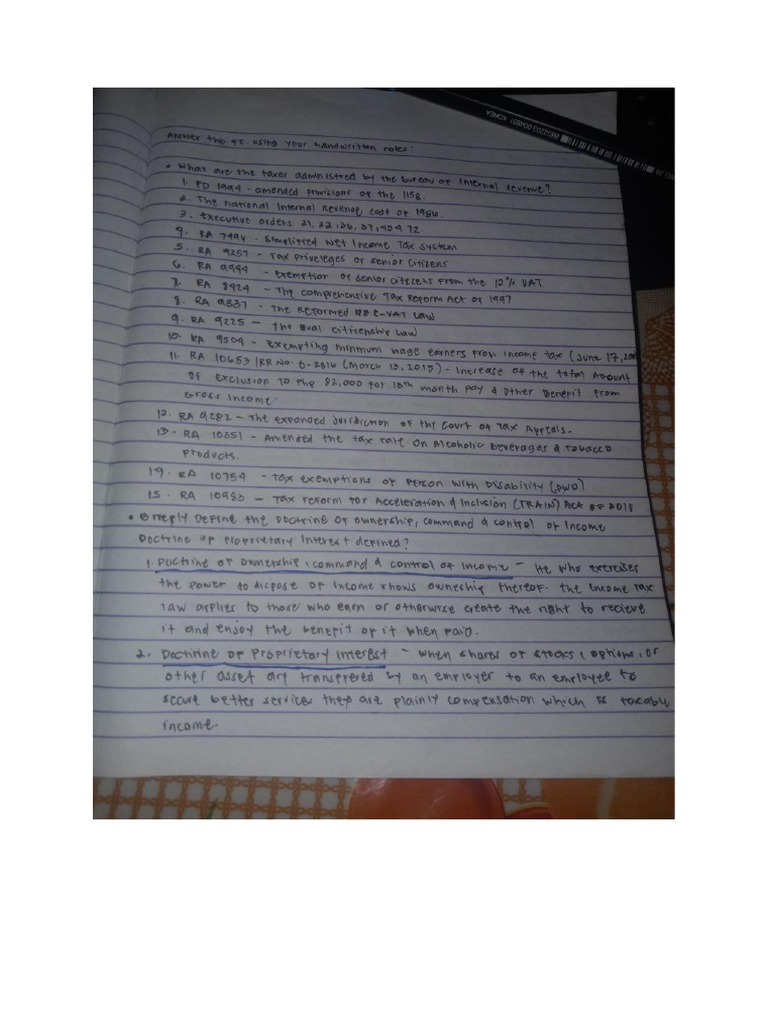 Answer the ff. using your handwritten notes:
• What are the taxes administred by the bureau of Internal Revenue?
1. PD 1994 - amended provisions of the 1158.
2. The National Internal Revenue Code of 1986.
3. Executive orders 21, 22, 26, 37, 40 & 72.
4. RA 7496 - Simplified Net Income Tax System
5. RA 9257 - Tax Priveleges of Senior Citizens
6. RA 9994 - Exemption of senior citizens from the 12% VAT
7. RA 8424 - The Comprehensive Tax Reform Act of 1997
8. RA 9337 - The Reformed E-VAT Law
9. RA 9225 - The Dual Citizenship Law
10. RA 9504 - Exempting minimum wage earners from income tax (June 17,
11. RA 10653 / RR No. 6-2816 (March 13, 2015) - Increase of the total Amount
of exclusion to Php 82,000 for 13th month Pay & other Benefit from
Gross Income.
12. RA 9282 - The expanded Juridiction of the Court of Tax Appeals.
13. RA 10351 - Amended the tax rate on Alcoholic beverages & tobacco
products.
14. RA 10754 - Tax exemptions of Person with Disability (PWD)
15. RA 10983 - Tax reform for Acceleration & Inclusion (TRAIN) Act of 2018
• Briefly Define the Doctrine of ownership, command & control of Income
Doctrine of Proprietary Interest defined?
1. Doctrine of Ownership, command & control of Income - He who exercises
the power to dispose of income khows ownership thereof. The Income tax
law applies to those who earn or otherwise create the right to recieve
it and enjoy the benefit of it when paid.
2. Doctrine of Proprietary Interest - when shares of stocks, options, or
other asset are transferred by an employer to an employee to
secure better service they are plainly compensation which is taxable
income.
BBG2203 004931 KOREA